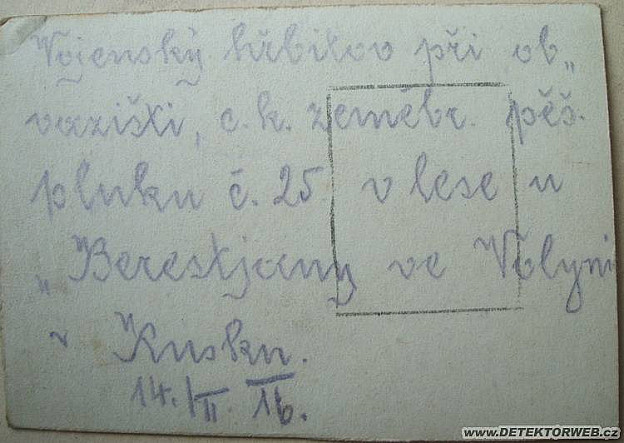 Vojenský hřbitov při ob„
vazišti, c. k. zeměbr. pěš.
pluku č. 25 v lese u
„Berestjany ve Volyni
v Rusku.
14./II. 16.
WWW.DETEKTORWEB.CZ